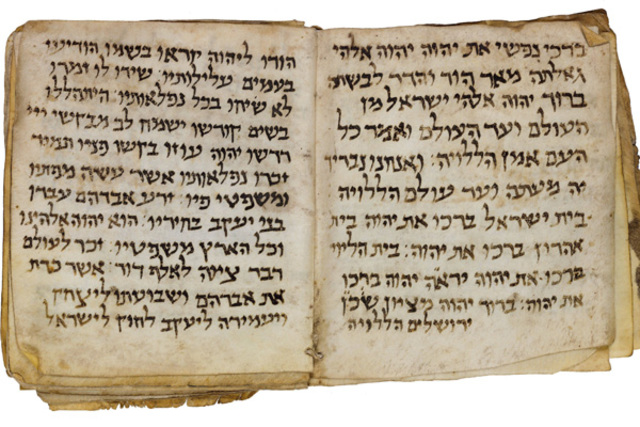 ברכי נפשי את יהוה יהוה אלהי
גדלתה מאד הוד והדר לבשתה
ברוך יהוה אלהי ישראל מן
העולם ועד העולם ואמר כל
העם אמן הללויה: ואנחנו נבריך
יה מעתה ועד עולם הללויה
בית ישראל ברכו את יהוה בית
אהרון ברכו את יהוה: בית הליוי
ברכו את יהוה יראה יהוה ברכו
את יהוה: ברוך יהוה מציון שכן
ירושלים הללויה
הודו ליהוה קראו בשמו הודיעו
בעמים עלילותיו: שירו לו זמרו
לא שיחו בכל נפלאותיו: היתהללו
בשים קודשו ישמח לב מבקשי ייי
דרשו יהוה עוזו בקשו פניו תמיד
זכרו נפלאותיו אשר עשה מפתיו
ומשפטי פיו: זרע אברהם עבדו
בני יעקב בחיריו: הוא יהוה אלהינו
וכל הארץ משפטיו: זכר לעולם
דבר ציוה לאלף דור: אשר כרת
את אברהם ושבועתו ליצחק
ויעמידה ליעקב לחוק לישראל